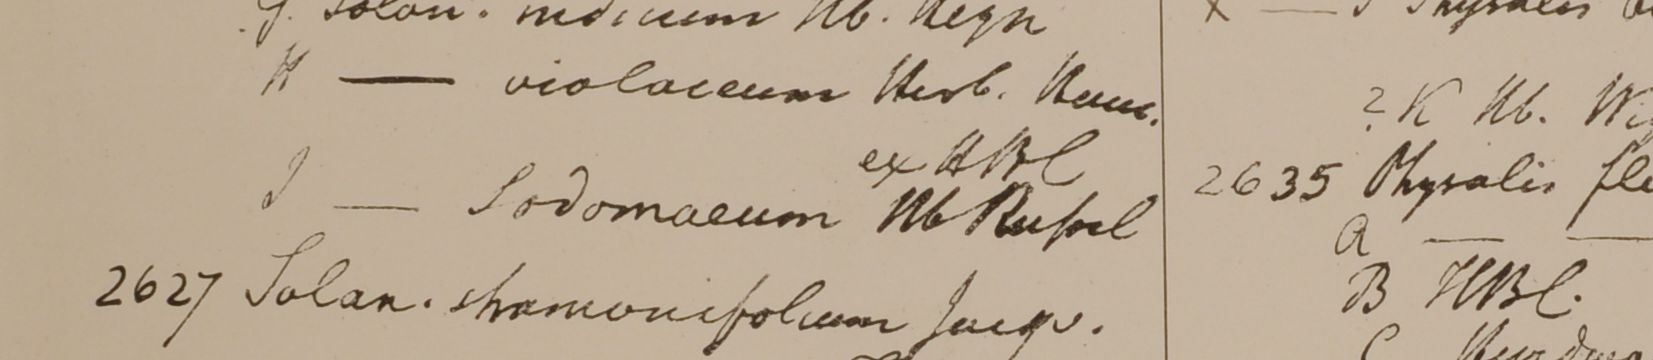 G. Solan. indicum Hb. Heyn
H — violaceum Herb. Ham.
ex HBC
I — Sodomaeum Hb Russel
2627 Solan. stramonifolium Jacqu.
Physalis
? K Hb.
2635 Physalis
A — —
B HBC.
C